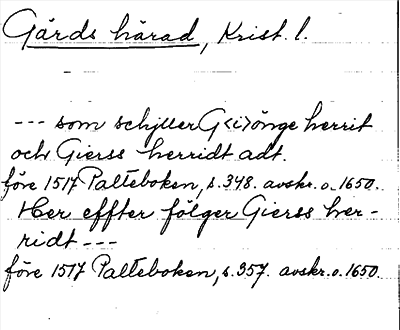 Gärds härad, Krist. l.
--- som schjller G<i>önge herrit
och Gierss herridt adt.
före 1517 Palteboken, s. 348. avskr. o. 1650.
Her effter fölger Gierss her-
ridt ---
före 1517 Palteboken, s. 357. avskr. o. 1650.